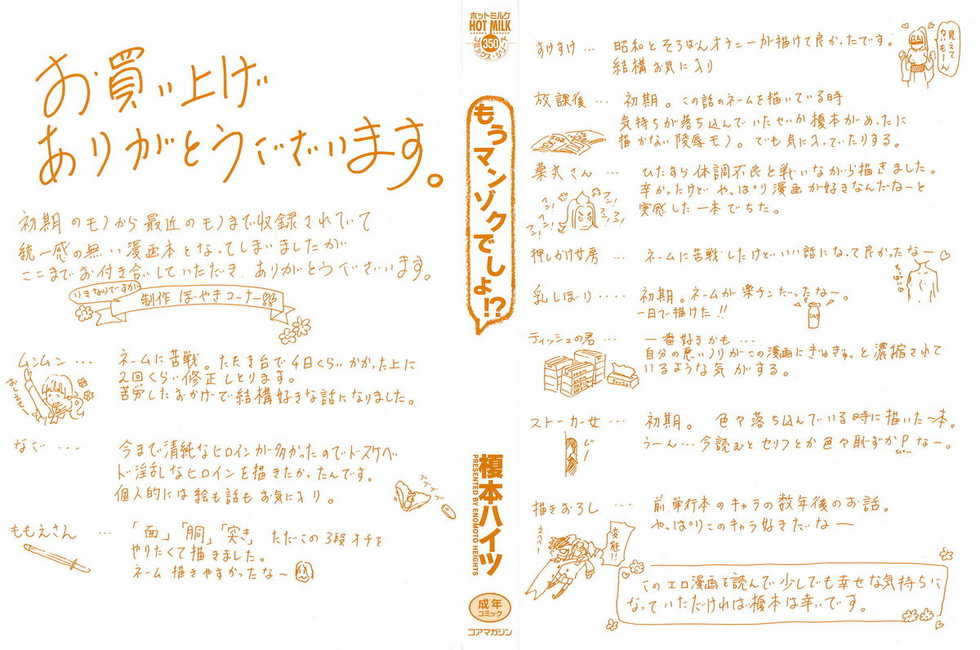 お買い上げ
ありがとうございます。
初期のモノから最近のモノまで収録されていて
統一感の無い漫画本となってしまいましたが
ここまでお付き合いしていただき、ありがとうございます。
いきなりですが
制作ぼやきコーナー
ムンムン…
ネームに苦戦。たたき台で4日くらいかかった上に
2回くらい修正しとります。
苦労したおかげで結構好きな話になりました。
なご…
今まで清純なヒロインが多かったのでドスケベ
ド淫乱なヒロインを描きたかったんです。
個人的には絵も話もお気に入り。
ももえさん…
「面」「胴」「突き」ただこの3段オチを
やりたくて描きました。
ネーム描きやすかったなー
ホットミルク
HOT MILK
350
もうマンゾクでしょ!?
榎本ハイツ
PRESENTED BY ENOMOTO HEIGHTS
成年
コミック
コアマガジン
すけすけ… 昭和とそろばんオナニーが描けて良かったです。
結構お気に入り
放課後… 初期。この話のネームを描いている時
気持ちが落ち込んでいたせいか榎本があんまに
描かない陵辱モノ。でも気に入っていたりする。
ひたすら体調不良と戦いながら描きました。
辛かったけどやっぱり漫画が好きなんだなーと
実感した一本でちた。
押しかけ女房… ネームに苦戦したけどいい話になって良かったなー♡
乳しぼり… 初期。ネームが楽チンだったなー。
一日で描けた!!
ティッシュの君… 一番好きかも…
自分の悪いノリがこの漫画にぎゅぎゅっと濃縮されて
いるような気がする。
ストーカー女… 初期。色々落ち込んでいる時に描いた一本。
うーん…今読むとセリフとか色々恥ずかしいなー。
描きおろし… 前単行本のキャラの数年後のお話。
やっぱりこのキャラ好きだなー
このエロ漫画を読んで少しでも幸せな気持ちに
なっていただければ榎本は幸いです。